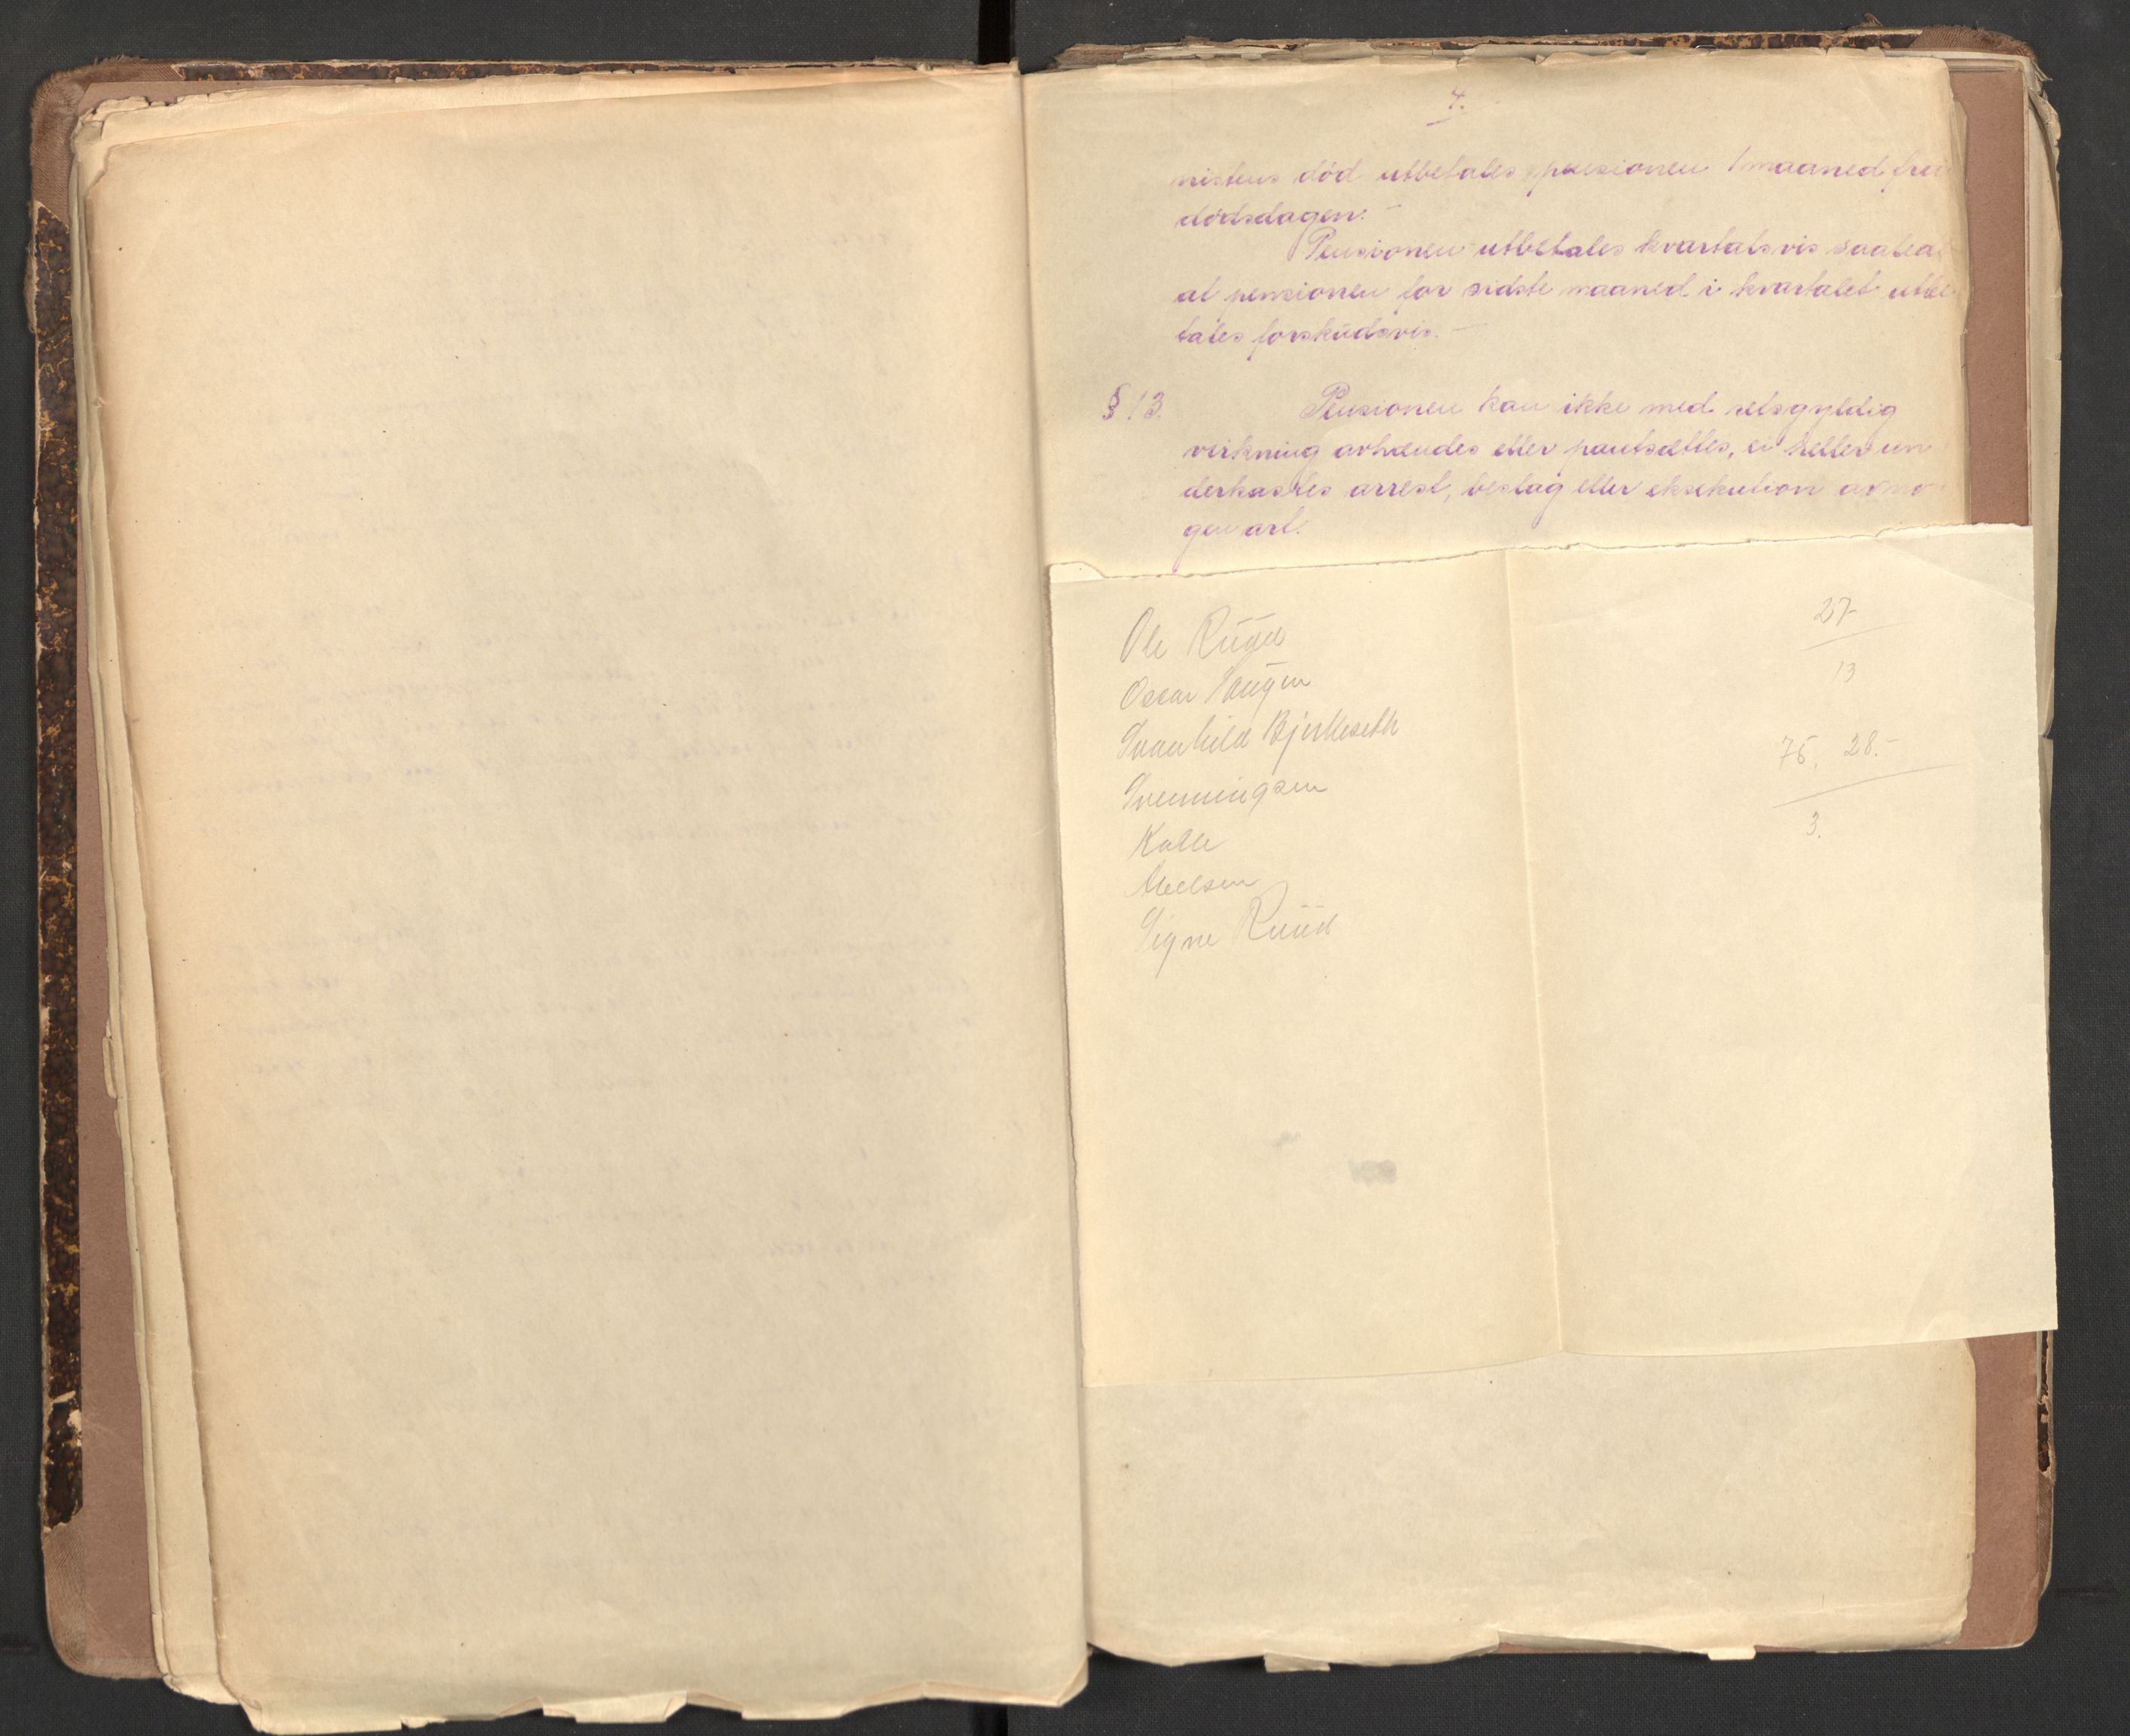 4.
nistens död utbetales pensionen 1 maaned frem
dödsdagen.
Pensionen utbetales kvartalsvis saaleds
at pensionen for sidste maaned i kvartalet utbe
tales forskudsvis. —
§ 13. Pensionen kan ikke med retsgyldig
virkning avhændes eller pantsættes, ei heller un
derkastes arrest, beslag eller eksekution av no
gen art.
Ole Ruud
27-
Oscar Haugen
13
Svanhild Bjerkeseth
75, 28.-
Svenningsen
3.
Kalle
Signe Ruud